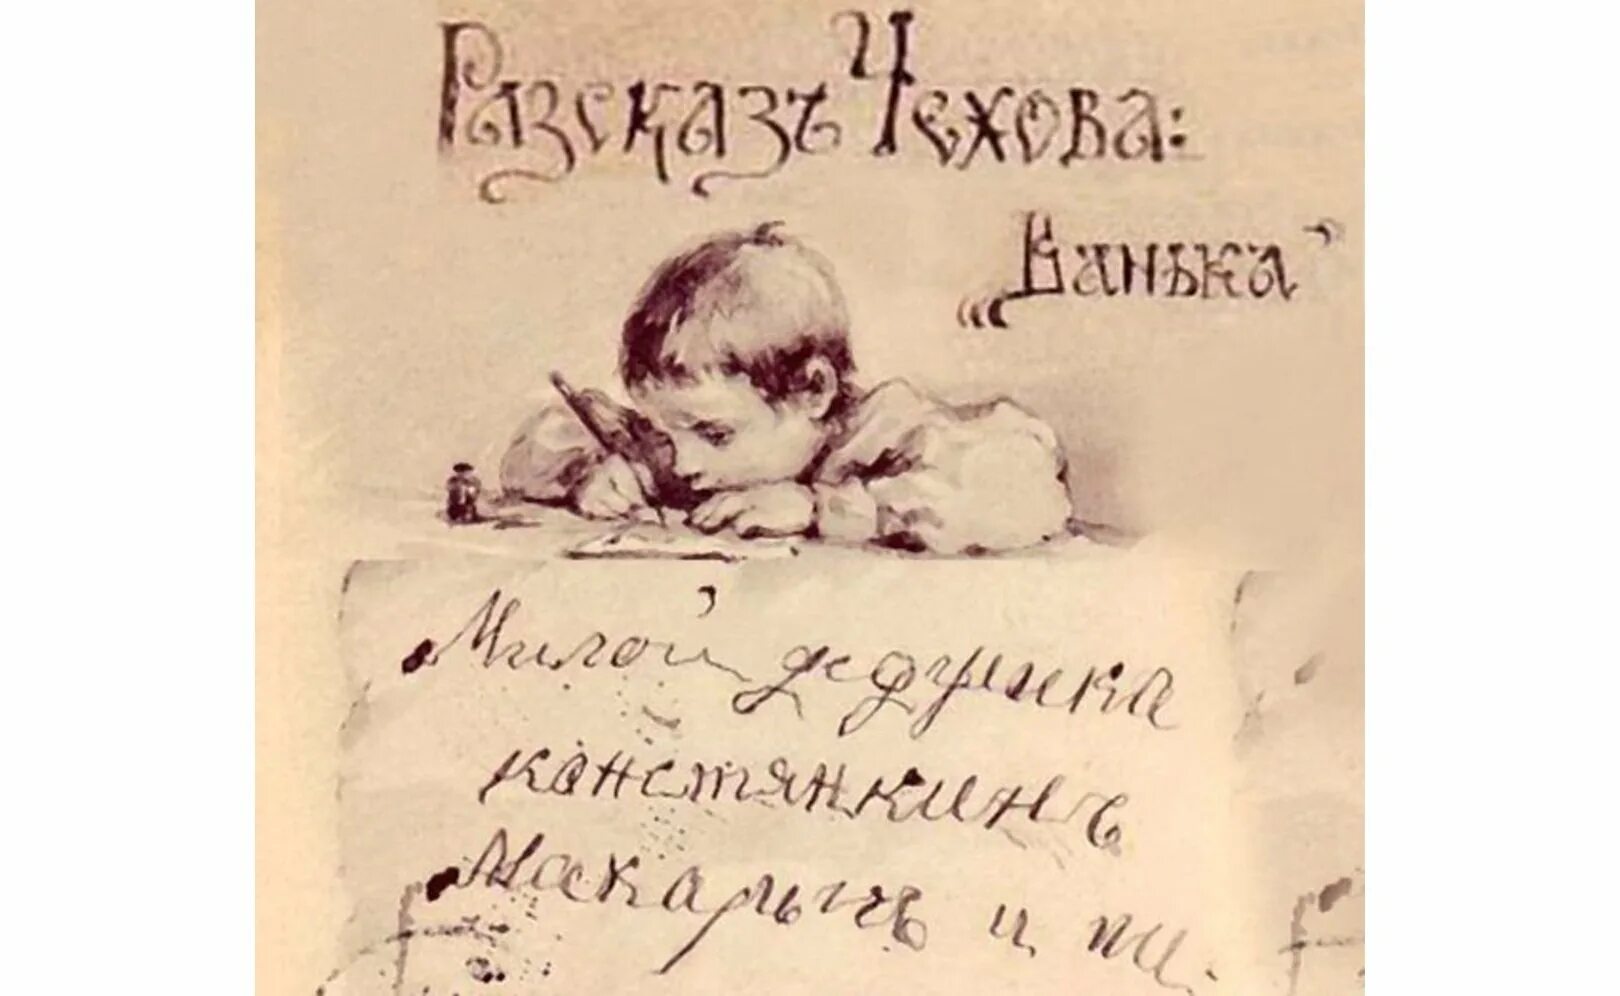 Разсказъ Чехова:
„Ванька”
Милой дедушка
констянкинъ
Макарычъ и пи